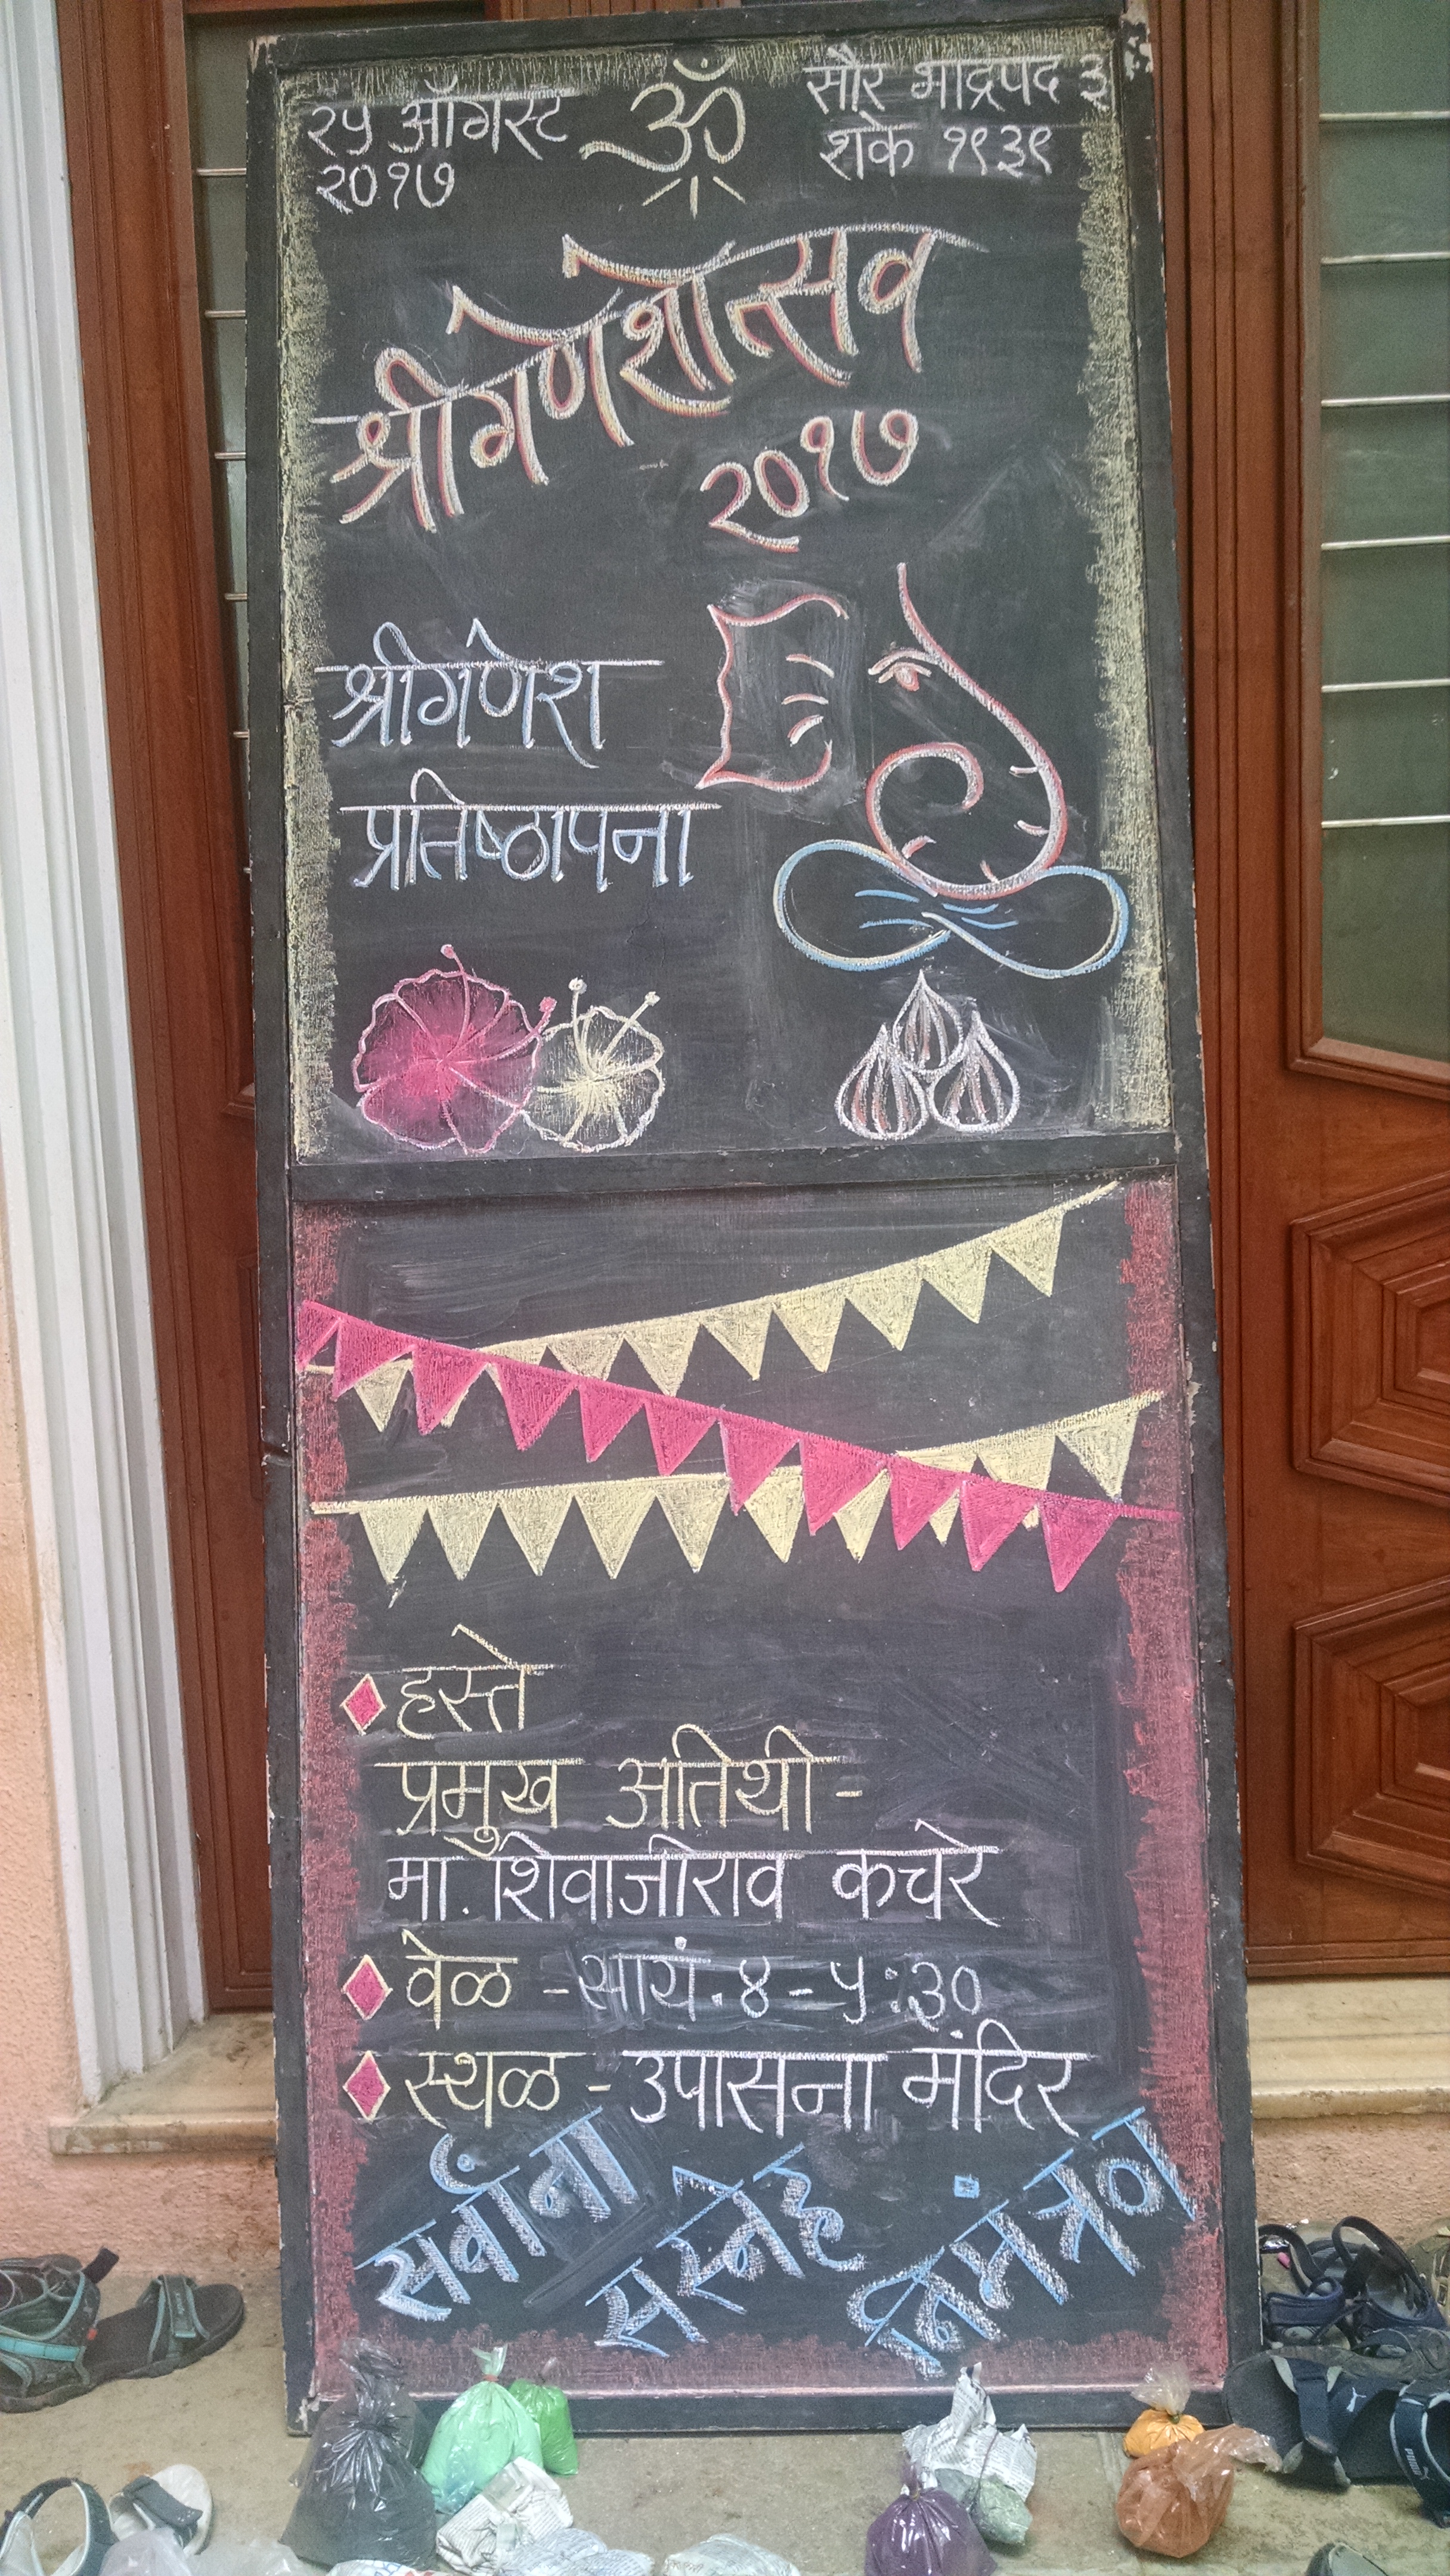 २५ ऑगस्ट
२०१७
ॐ
सौर भाद्रपद ३
शके १९३९
श्रीगणेशोत्सव
२०१७
श्रीगणेश
प्रतिष्ठापना
हस्ते
प्रमुख अतिथी -
मा. शिवाजीराव कचरे
वेळ - सायं. ४ - ५:३०
स्थळ - उपासना मंदिर
सर्वांना सस्नेह निमंत्रण